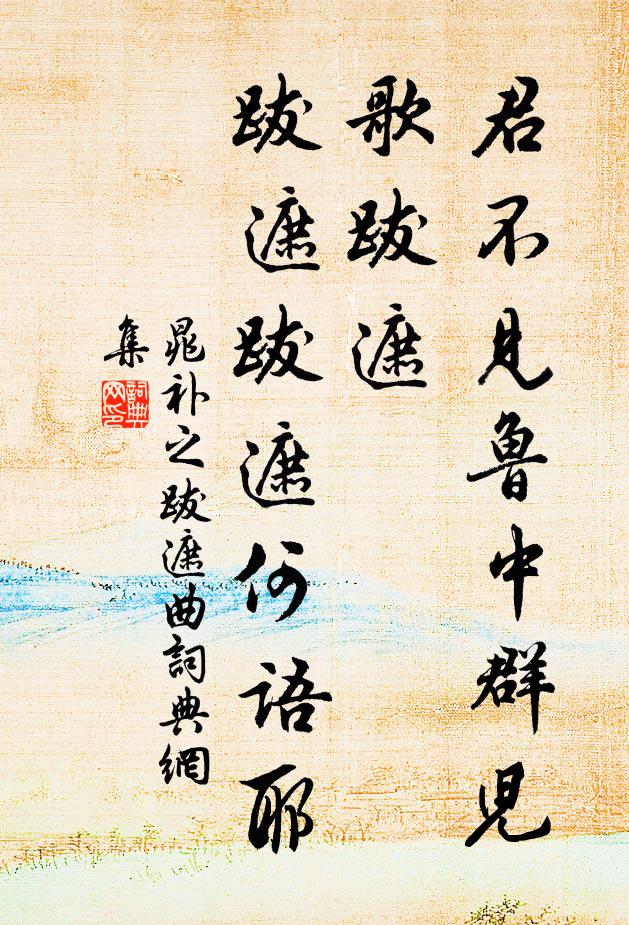 君不見魯中群児
歌跋遮
跋遮跋遮何语耶
晁补之跋遮曲詞典網
集
詞典
网印